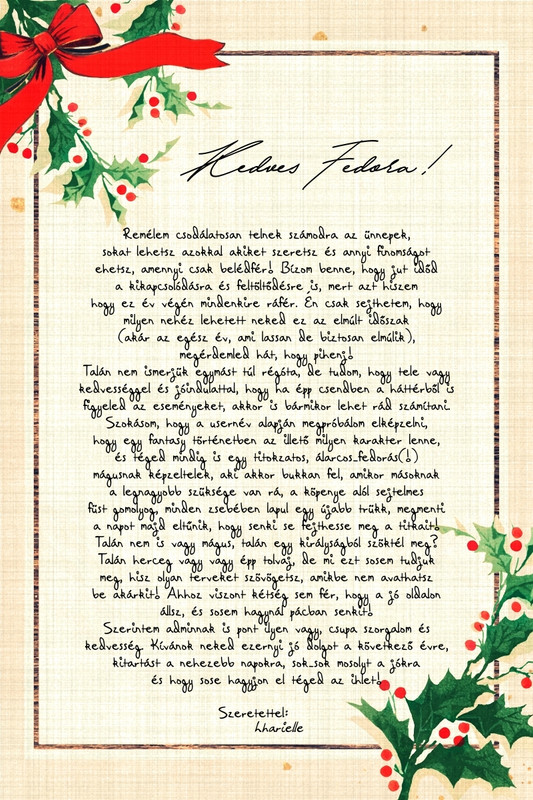 Kedves Fedora!
Remélem csodálatosan telnek számodra az ünnepek,
sokat lehetsz azokkal akiket szeretsz és annyi finomságot
ehetsz, amennyi csak beléd fér! Bízom benne, hogy jut időd
a kikapcsolódásra és feltöltődésre is, mert azt hiszem
hogy ez év végén mindenkire ráfér. Én csak sejthetem, hogy
milyen nehéz lehetett neked ez az elmúlt időszak
(akár az egész év, ami lassan de biztosan elmúlik),
megérdemled hát, hogy pihenj!
Talán nem ismerjük egymást túl régóta, de tudom, hogy tele vagy
kedvességgel és jóindulattal, hogy ha épp csendben a háttérből is
figyeled az eseményeket, akkor is bármikor lehet rád számítani.
Szokásom, hogy a usernév alapján megpróbálom elképzelni,
hogy egy fantasy történetben az illető milyen karakter lenne,
és téged mindig is egy titokzatos, álarcos_fedorás(!)
mágusnak képzeltelek, aki akkor bukkan fel, amikor másoknak
a legnagyobb szüksége van rá, a köpenye alól sejtelmes
füst gomolyog, minden zsebében lapul egy újabb trükk, megmenti
a napot majd eltűnik, hogy senki se fejthesse meg a titkait!
Talán nem is vagy mágus, talán egy királyságból szöktél meg?
Talán herceg vagy vagy épp tolvaj, de mi ezt sosem tudjuk
meg, hisz olyan terveket szövögetsz, amikbe nem avathatsz
be akárkit! Ahhoz viszont kétség sem fér, hogy a jó oldalon
állsz, és sosem hagynál pácban senkit!
Szerintem adminnak is pont ilyen vagy, csupa szorgalom és
kedvesség. Kívánok neked ezernyi jó dolgot a következő évre,
kitartást a nehezebb napokra, sok_sok mosolyt a jókra
és hogy sose hagyjon el téged az ihlet!
Szeretettel:
Lharielle